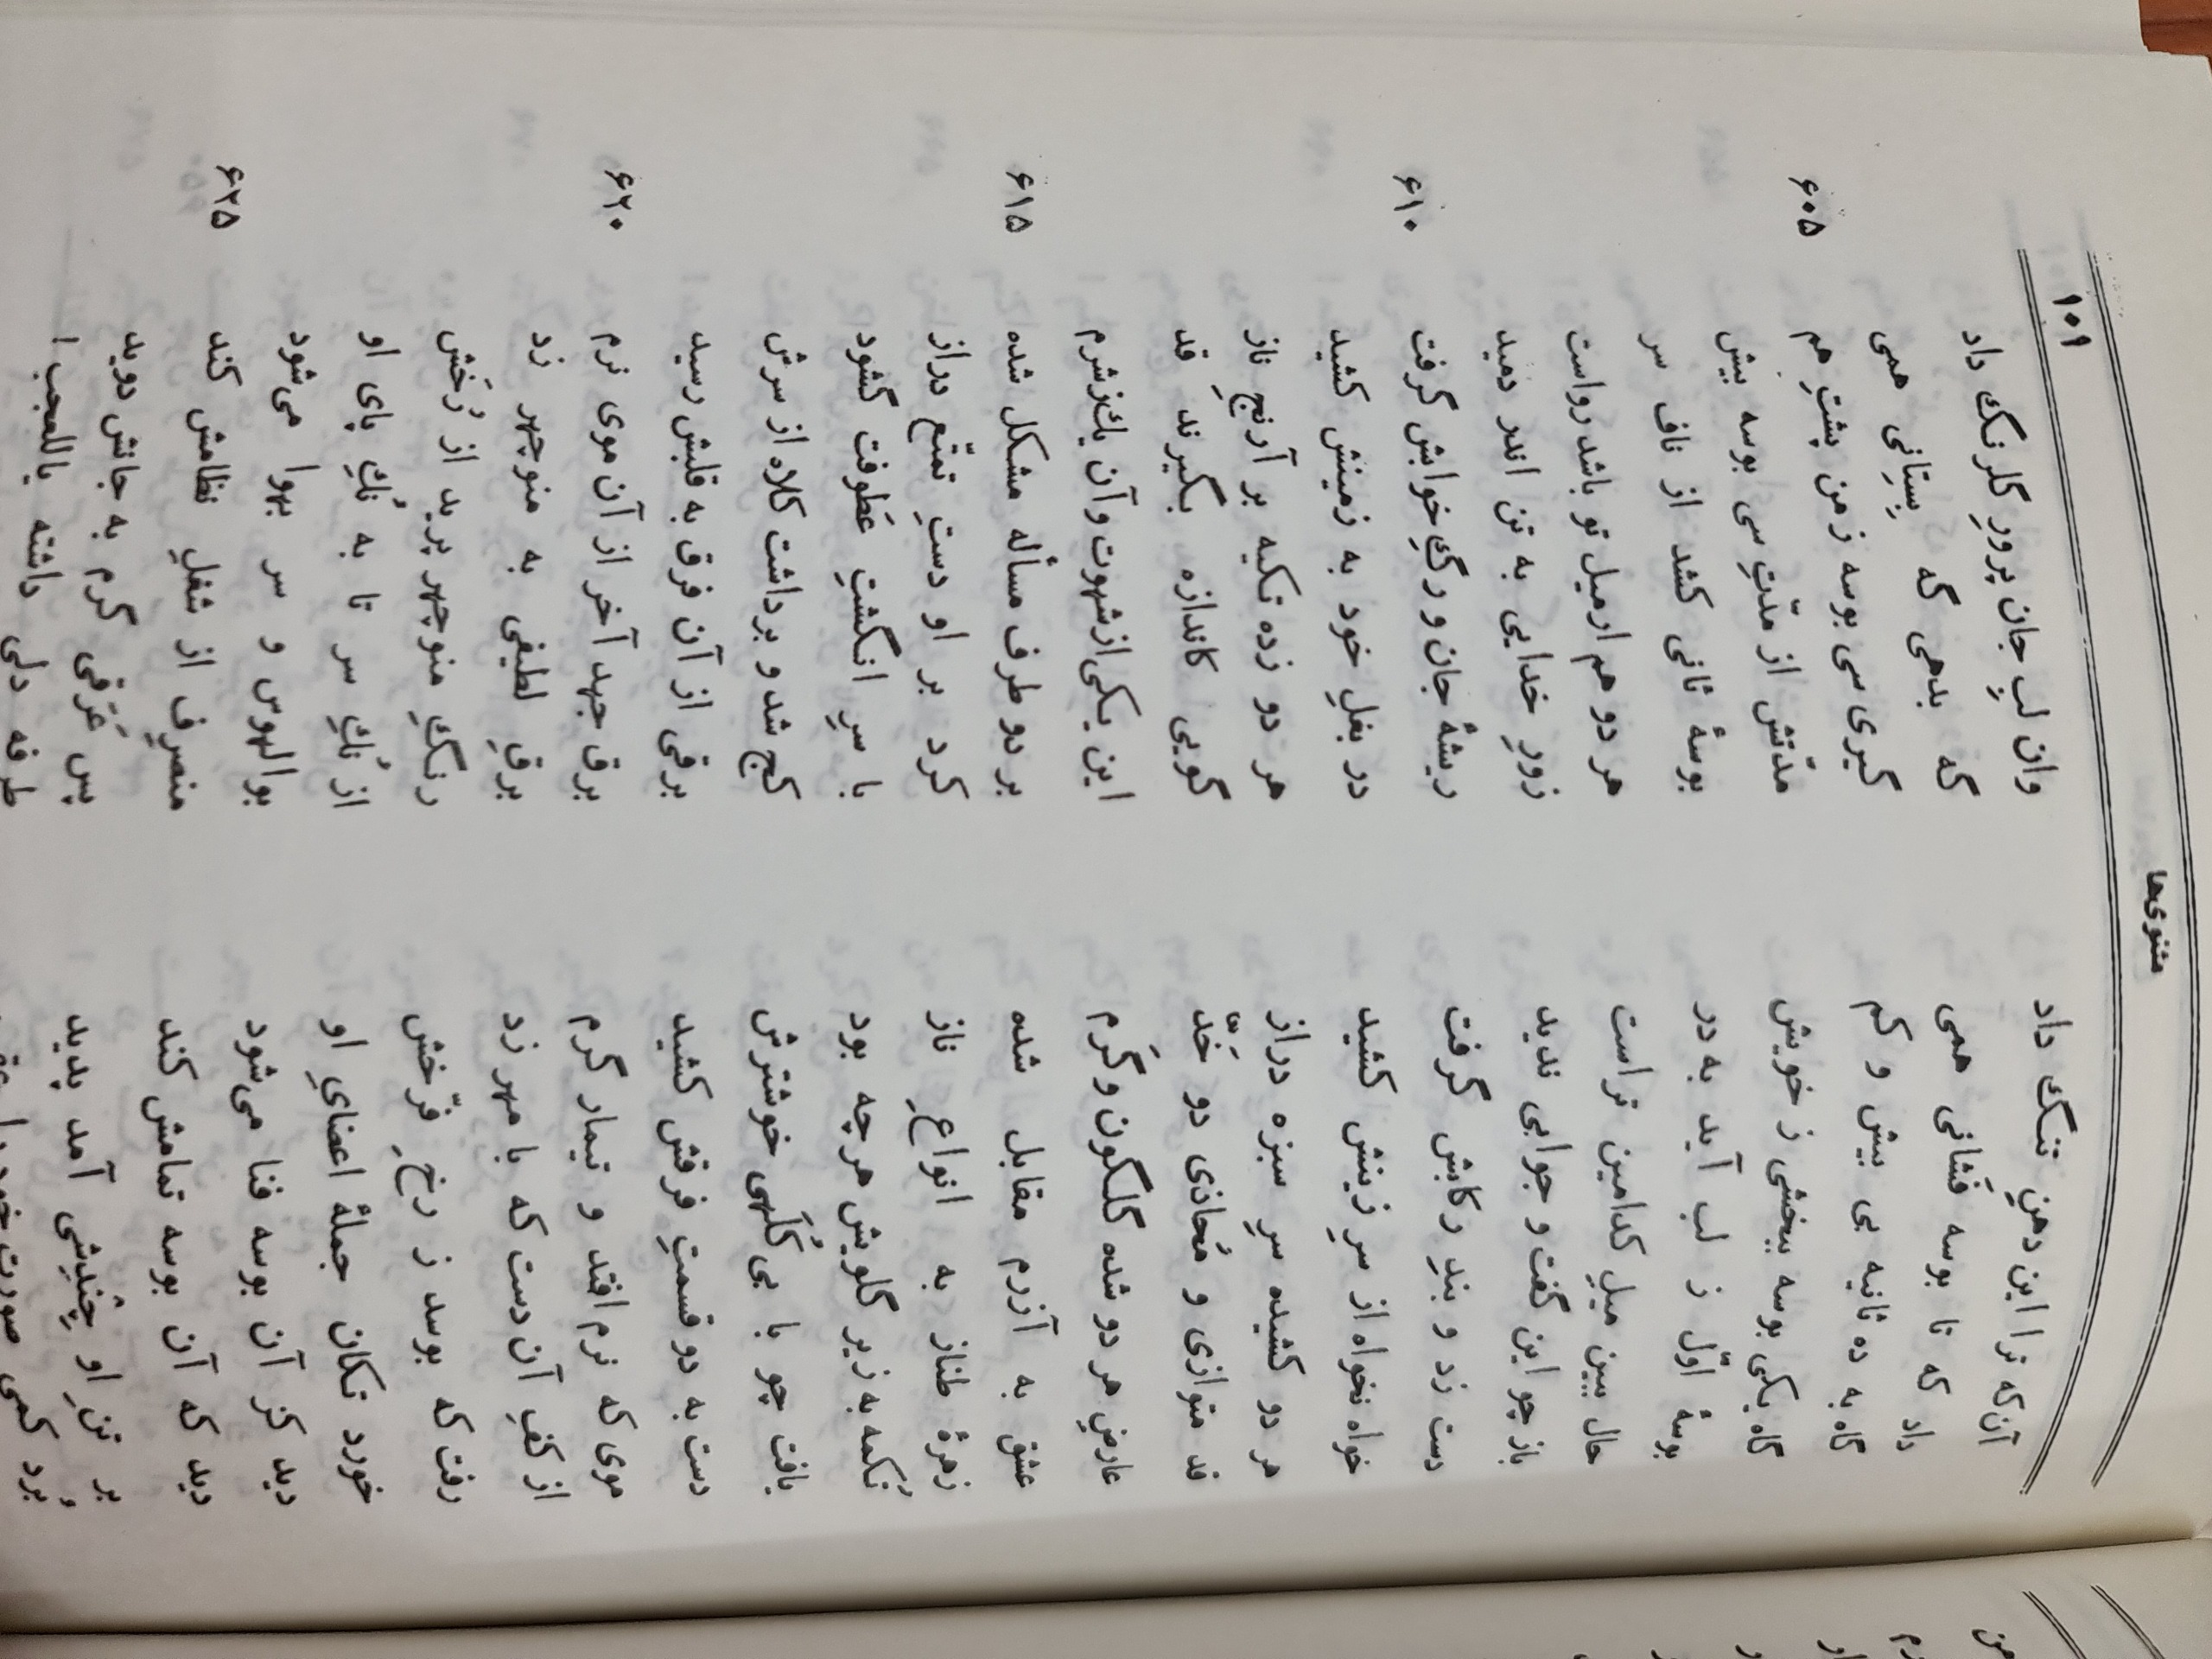 مثنوی‌ها
۱۰۹
آن‌که ترا این دهنِ تنگ داد وان لبِ جان پرورِ گلرنگ داد
داد که تا بوسه فِشانی همی گه بدهی گه بِستِانی همی
گاه به ده ثانیه بی بیش و کم گیری سی بوسه ز من پشتِ هم
۶۰۵
گاه یکی بوسه ببخشی ز خویش مدّتش از مدّتِ سی بوسه بیش
بوسهٔ اوّل ز لب آید به در بوسهٔ ثانی کشد از ناف سر
حال ببین میلِ کدامین تراست هر دو هم ار میل تو باشد رواست
باز چو این گفت و جوابی ندید زورِ خدایی به تن اندر دمید
دست زد و بندِ رکابش گرفت ریشهٔ جان و رگِ خوابش گرفت
۶۱۰
خواه نخواه از سرِ زینش کشید در بغلِ خود به زمینش کشید
هر دو کشیده سرِ سبزه دراز هر دو زده تکیه بر آرنجِ ناز
قد متوازی و مُحاذی دو خَدّ گویی کاندازه بگیرند قد
عارضِ هر دو شده گلگون و گَرم این یکی از شهوت و آن یک ز شرم
عشق به آزرم مقابل شده بر دو طرف مسأله مشکل شده
۶۱۵
زهرهٔ طناز به انواعِ ناز کرد بر او دستِ تمتّع دراز
تُکمه به زیر گلویش هر چه بود با سرِ انگشتِ عَطوفت گشود
یافت چو با بی کُلَهی خوشترش کج شد و برداشت کلاه از سرش
دست به دو قسمتِ فرقش کشید برقی از آن فرق به قلبش رسید
موی که نرم افتد و تیمار گرم برق جهد آخر از آن موی نرم
۶۲۰
از کفِ آن دست که با مهر زد برقِ لطیفی به منوچهر زد
رفت که بوسد ز رخِ فرّخش رنگِ منوچهر پرید از رُخَش
خورد تکان جملهٔ اعضایِ او از نُکِ سر تا به نُکِ پای او
دید کز آن بوسه فنا می‌شود بوالهوس و سر بهوا می‌شود
دید که آن بوسه تمامش کند منصرِف از شغلِ نظامش کند
۶۲۵
بر تنِ او چِندِشی آمد پدید پس عَرَقی گرم به جانش دوید
برد کمی صورت خود را طرفه دلی داشته یاللعجب!